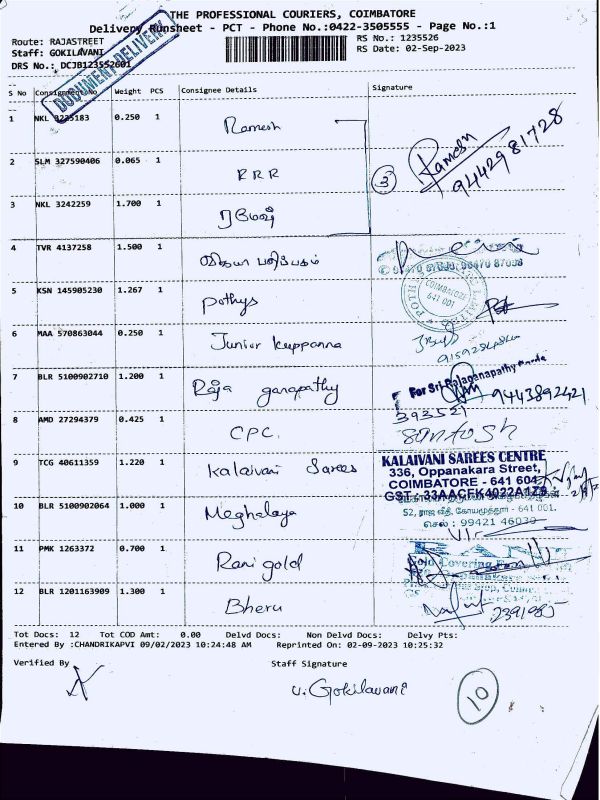 THE PROFESSIONAL COURIERS, COIMBATORE
Delivery Runsheet - PCT - Phone No.:0422-3505555 - Page No.:1
Route: RAJASTREET
RS No.: 1235526
Staff: GOKILAVANI
RS Date: 02-Sep-2023
DRS No.: DCJB123552601
DOCUMENT DELIVERY
S No Consignment No Weight PCS Consignee Details Signature
1 NKL 3225183 0.250 1 Ramesh Ramesh
9442981728
2 SLM 327590406 0.065 1 RRR 3
3 NKL 3242259 1.700 1 ரமேஷ்
4 TVR 4137258 1.500 1 விஜயா பதிப்பகம்
5 KSN 145905230 1.267 1 Pothys COIMBATORE
641 001
6 MAA 570863044 0.250 1 Junior kuppanna
7 BLR 5100902710 1.200 1 Raja ganapathy For Sri Rajaganapathy
9443892421
393521
8 AMD 27294379 0.425 1 CPC. Santosh
9 TCG 40611359 1.220 1 Kalaivani Sarees KALAIVANI SAREES CENTRE
336, Oppanakara Street,
COIMBATORE - 641 604
GST : 33AACFK4022A1Z9
10 BLR 5100902064 1.000 1 Meghalaya 52, ராஜ வீதி, கோயமுத்தூர் - 641 001.
செல் : 99421 46030
11 PMK 1263372 0.700 1 Rani gold Gold Covering
12 BLR 1201163909 1.300 1 Bheru 2391985
Tot Docs: 12 Tot COD Amt: 0.00 Delvd Docs: Non Delvd Docs: Delvy Pts:
Entered By :CHANDRIKAPVI 09/02/2023 10:24:48 AM Reprinted On: 02-09-2023 10:25:32
Verified By Staff Signature
V. Gokilavani
10